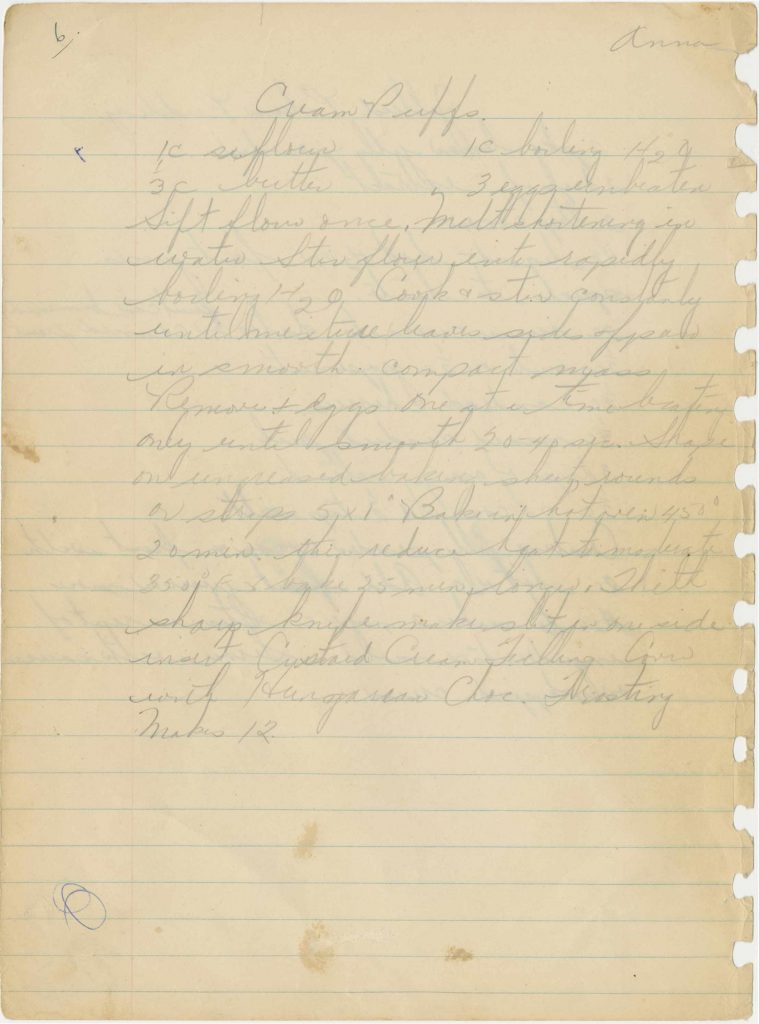 6.
Anna
Cream Puffs.
1c flour 1c boiling H2O
1/3 c butter 3 eggs unbeaten
Sift flour once. Melt shortening in
water Stir flour into rapidly
boiling H2O Cook & stir constantly
until mixture leaves sides of pan
in smooth. compact mass.
Remove & eggs one at a time beating
only until smooth 20-40 sec. Shape
on ungreased baking sheet rounds
or strips 5 x 1" Bake in hot oven 450°
20 min. then reduce heat to moderate
350° F & bake 25 min. longer. With
sharp knife make slit in one side
insert Custard Cream Filling Cover
with Hungarian Choc. Frosting
Makes 12.